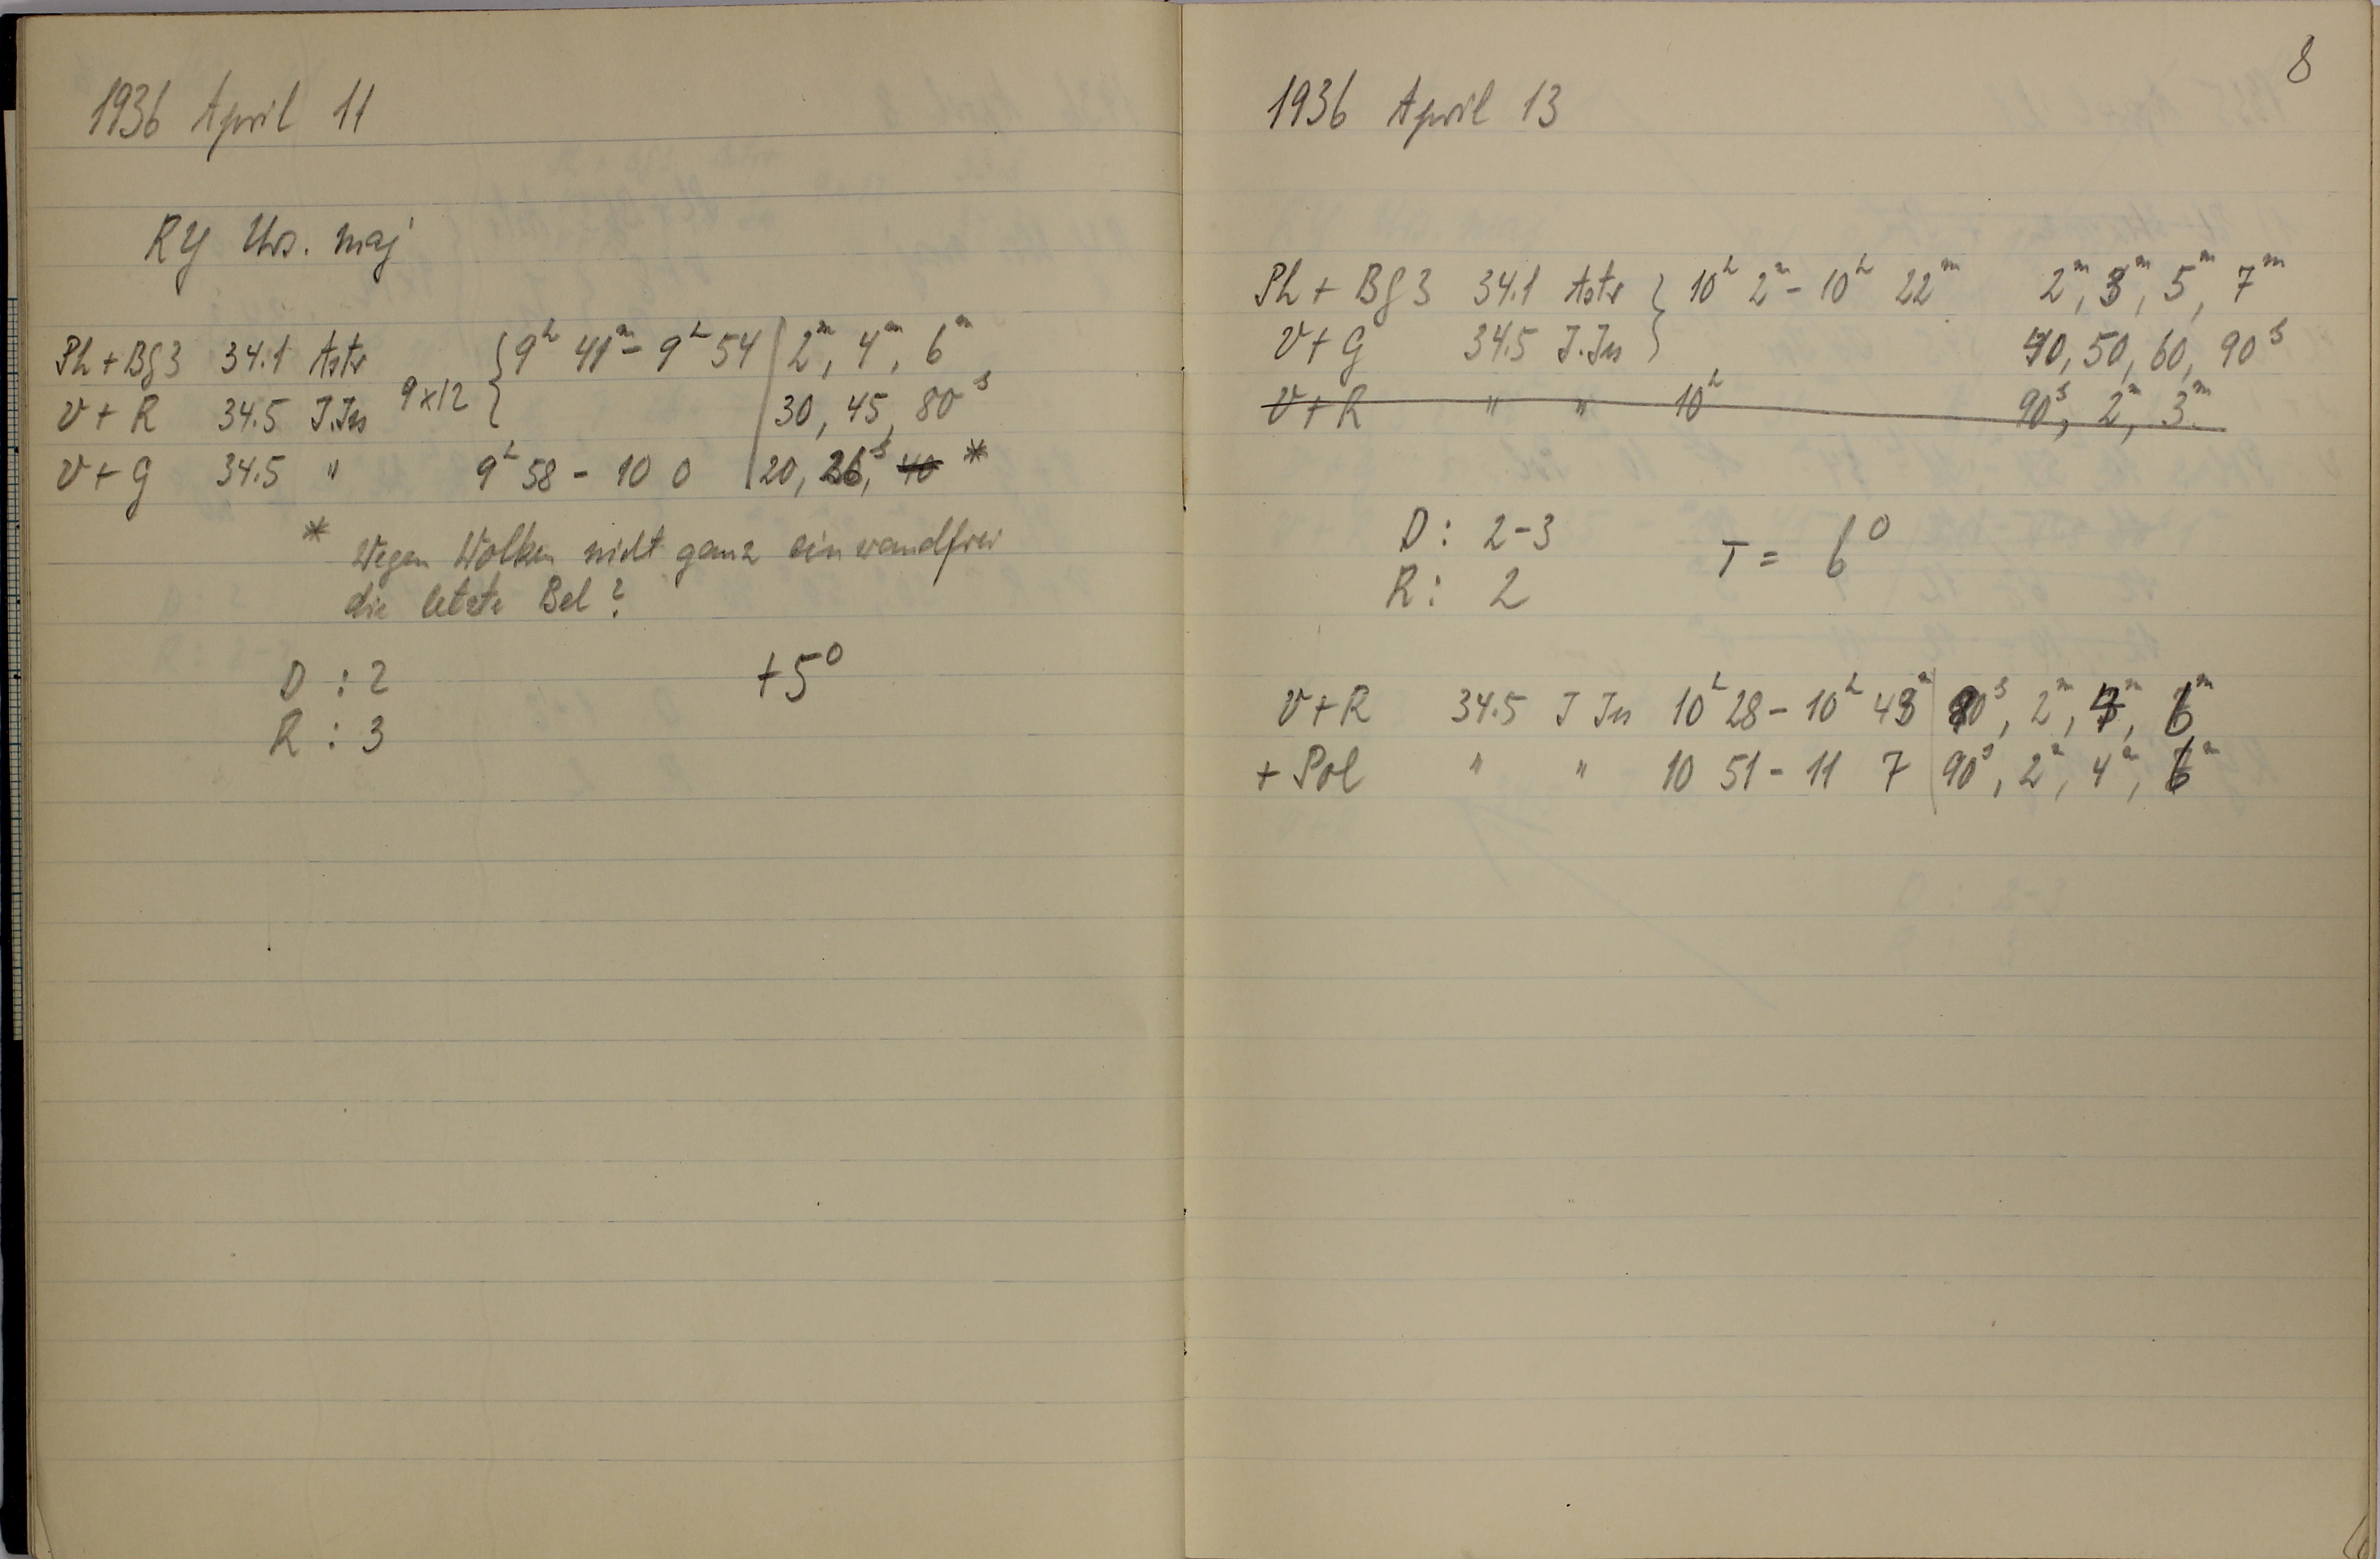 1936 April 11
RY Urs. maj
Ph + Bg 3 34.1 Astr 9x12 { 9h 41m - 9h 54 | 2m, 4m, 6m
V + R 34.5 J.Jns | 30, 45, 80s
V + G 34.5 " 9h 58 - 10 0 | 20, 26s, 40 *
* Wegen Wolken nicht ganz einwandfrei
die letzte Bel?
D : 2 +5°
R : 3
8
1936 April 13
Ph + Bg 3 34.1 Astr } 10h 2m - 10h 22m 2m, 3m, 5m, 7m
V + G 34.5 J.Jns 40, 50, 60, 90s
V + R " " 10h 90s, 2m, 3m
D: 2-3 T = 6°
R: 2
V + R 34.5 J Jns 10h 28 - 10h 43m | 90s, 2m, 4m, 6m
+ Pol " " 10 51 - 11 7 | 90s, 2m, 4m, 6m